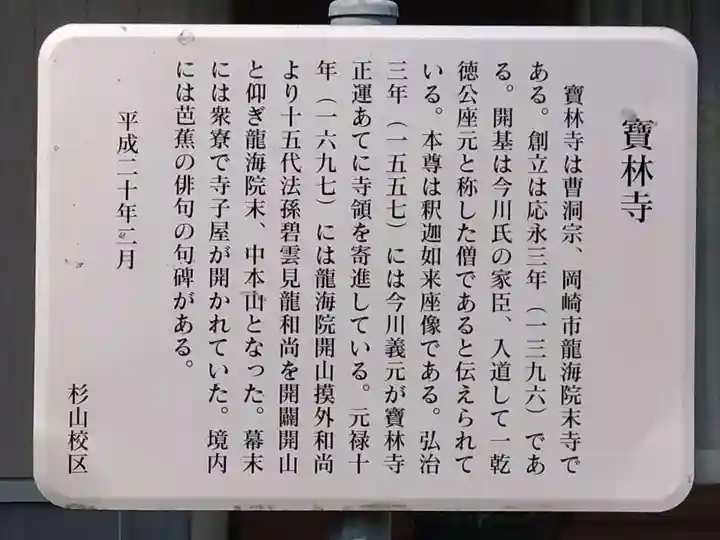 寶林寺
寶林寺は曹洞宗、岡崎市龍海院末寺で
ある。創立は応永三年（一三九六）であ
る。開基は今川氏の家臣、入道して一乾
徳公座元と称した僧であると伝えられて
いる。本尊は釈迦如来座像である。弘治
三年（一五五七）には今川義元が寶林寺
正運あてに寺領を寄進している。元禄十
年（一六九七）には龍海院開山摸外和尚
より十五代法孫碧雲見龍和尚を開闢開山
と仰ぎ龍海院末、中本山となった。幕末
には衆寮で寺子屋が開かれていた。境内
には芭蕉の俳句の句碑がある。
平成二十年二月
杉山校区